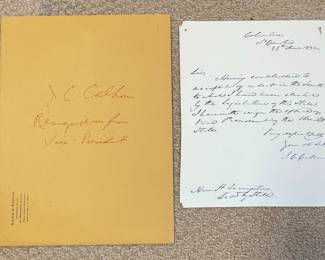 J C Calhoun
Resignation from
Vice-President
Columbia
So Carolina
28th Dec 1832
Sir
Having concluded to
accept of a seat in the Senate
to which I have been elected
by the Legislature of this State
I herewith resign the office of
Vice President of the United
States
Very respectfully
Your ob st
J C Calhoun
Hon
Secty of State